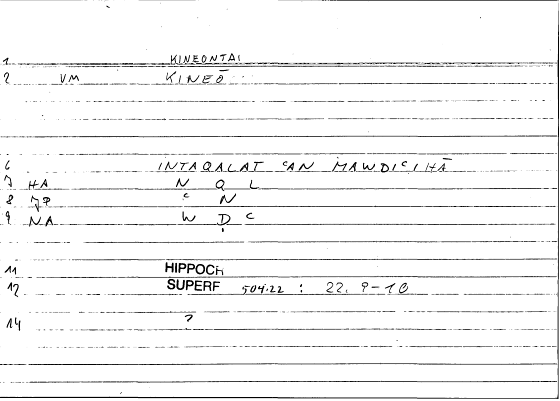 1 KINEONTAI
2 VM KINEŌ
6 INTAQALAT ʿAN MAWḌIʿIHĀ
7 HA N Q L
8 JP ʿ N
9 NA W Ḍ ʿ
11 HIPPOCH
12 SUPERF 504.22 : 22. 9-10
14 ?